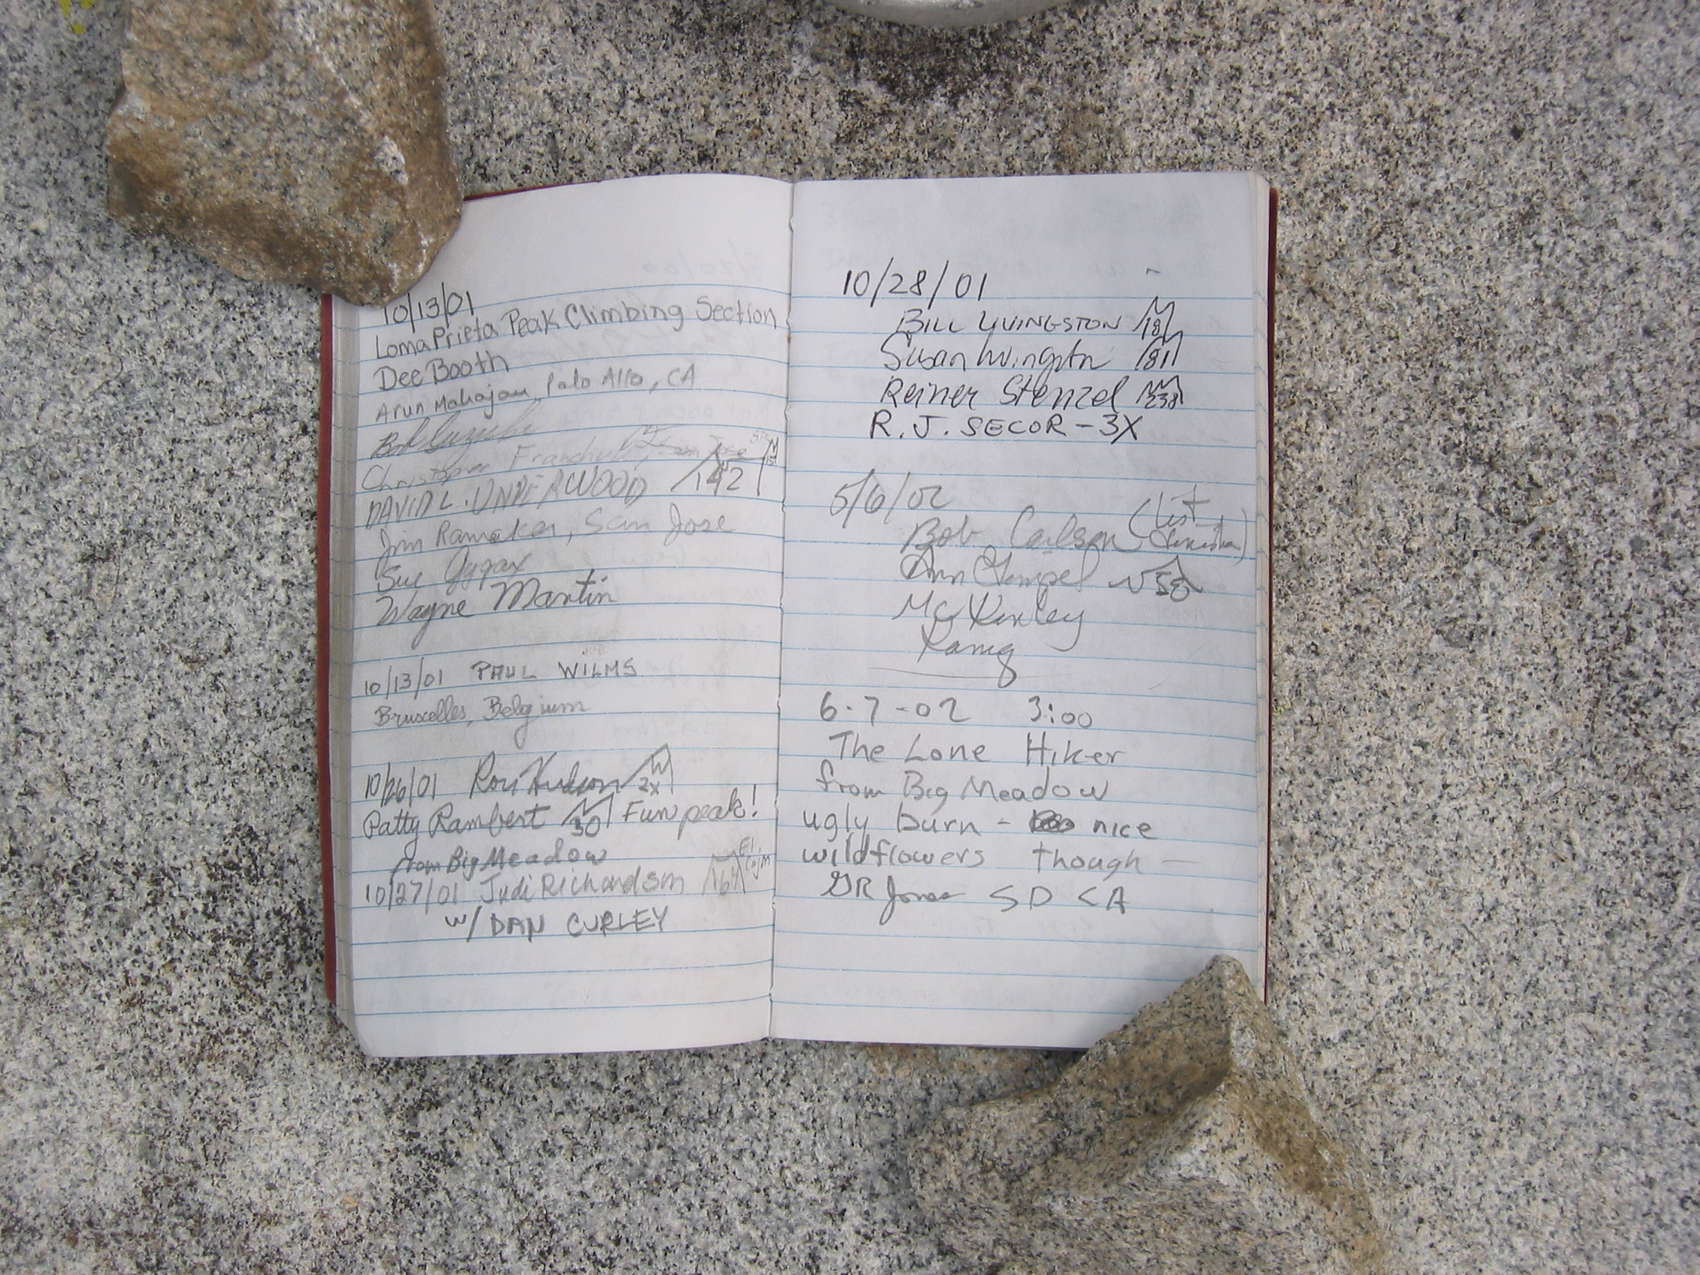 10/13/01
Loma Prieta Peak Climbing Section
Dee Booth
Arun Mahajan, Palo Alto, CA
Bob
DAVID L. UNDERWOOD 142
Jim Ramaker, San Jose
Sue
Wayne Martin
10/13/01 PAUL WILMS
Bruxelles, Belgium
10/26/01 Ron Hudson 2x
Patty Rambert 30 Fun peak!
from Big Meadow
10/27/01 Judi Richardson 64
w/ DAN CURLEY
10/28/01
BILL LIVINGSTON 181
Susan Livingston 181
Reiner Stenzel 238
R.J. SECOR - 3X
5/6/02
Bob Carlson (List
McKinley
6-7-02 3:00
The Lone Hiker
from Big Meadow
ugly burn - nice
wildflowers though -
GR Jones SD CA